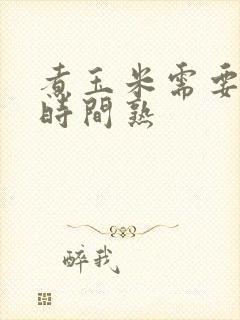 煮玉米需要
時間熟
醉我